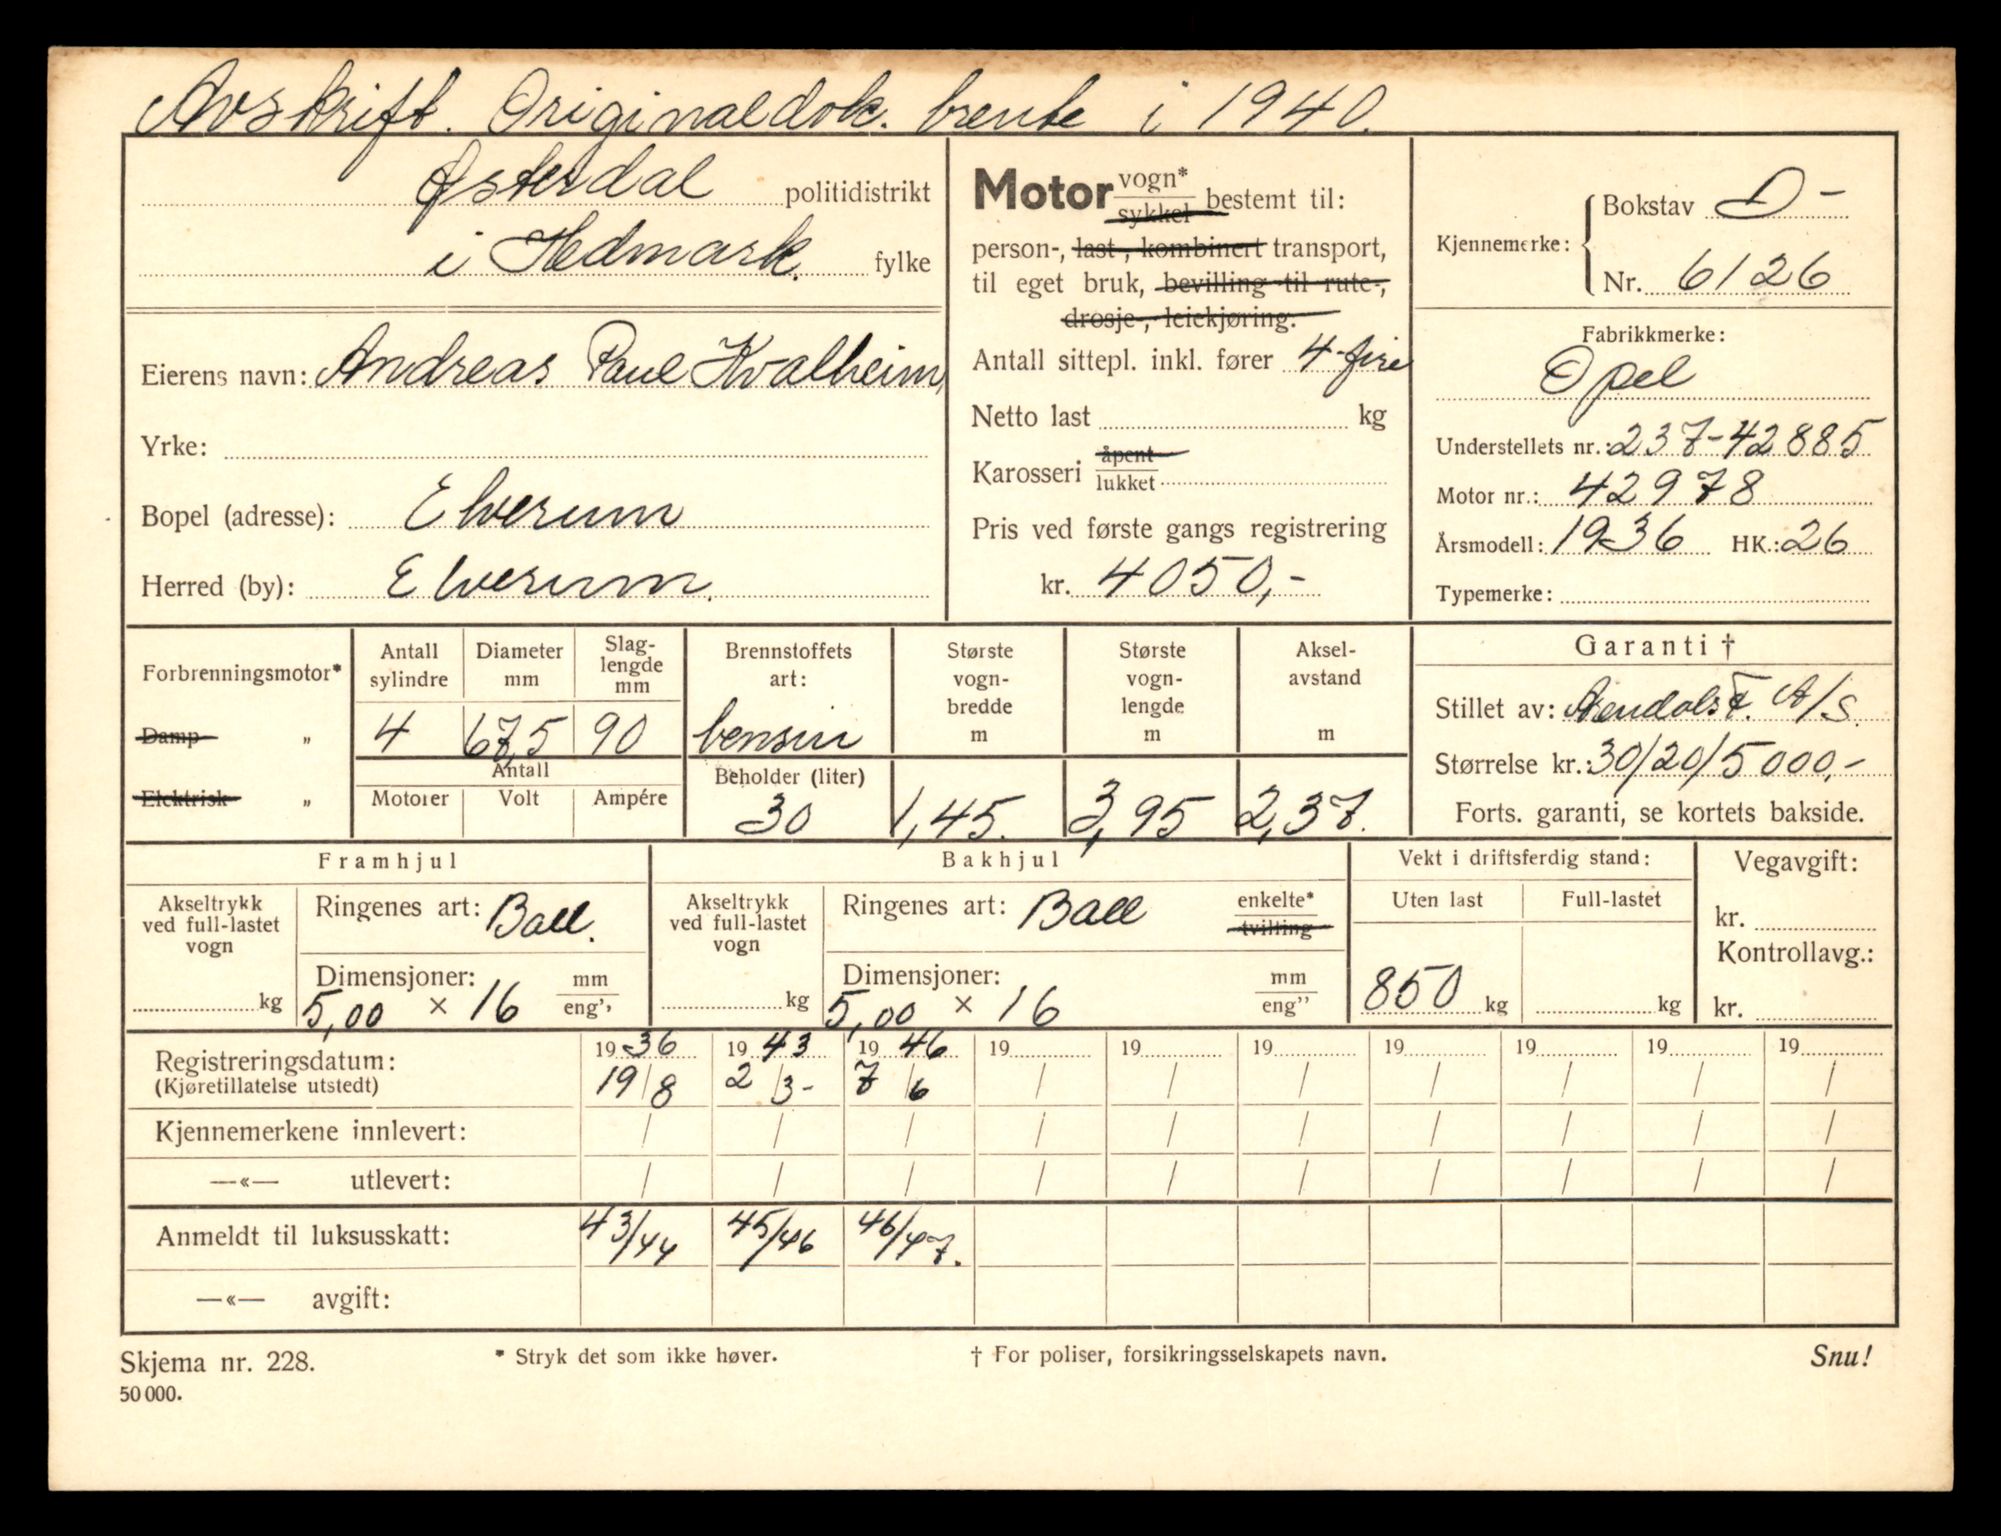 Avskrift. Originaldok. brente i 1940.
Østerdal politidistrikt
i Hedmark. fylke
Eierens navn: Andreas Paul Kvalheim,
Yrke:
Bopel (adresse): Elverum
Herred (by): Elverum.
Motor vogn* sykkel bestemt til:
person-, last-, kombinert transport,
til eget bruk, bevilling til rute-,
drosje-, leiekjøring.
Antall sittepl. inkl. fører 4-fire
Netto last kg
Karosseri åpent lukket
Pris ved første gangs registrering
kr. 4050,-
Kjennemerke: Bokstav D-
Nr. 6126
Fabrikkmerke:
Opel
Understellets nr.: 237-42885
Motor nr.: 42978
Årsmodell: 1936 HK.: 26
Typemerke:
Forbrenningsmotor*
Damp "
Elektrisk "
Antall sylindre
4
Diameter mm
67,5
Slag-
lengde
mm
90
Antall
Motorer Volt Ampére
Brennstoffets
art:
bensin
Beholder (liter)
30
Største
vogn-
bredde
m
1,45.
Største
vogn-
lengde
m
3,95
Aksel-
avstand
m
2,37.
Garanti †
Stillet av: Arendals F. A/S.
Størrelse kr.: 30/20/5000,-
Forts. garanti, se kortets bakside.
Framhjul
Akseltrykk
ved full-lastet
vogn
kg
Ringenes art: Ball.
Dimensjoner: mm
5,00 × 16 eng''
Bakhjul
Akseltrykk
ved full-lastet
vogn
kg
Ringenes art: Ball enkelte* tvilling
Dimensjoner: mm
5,00 × 16 eng''
Vekt i driftsferdig stand:
Uten last Full-lastet
850 kg kg
Vegavgift:
kr.
Kontrollavg.:
kr.
Registreringsdatum: 1936 1943 1946 19 19 19 19 19 19 19
(Kjøretillatelse utstedt) 19/8 2/3- 7/6 / / / / / / /
Kjennemerkene innlevert: / / / / / / / / / /
—«— utlevert: / / / / / / / / / /
Anmeldt til luksusskatt: 43/44 45/46 46/47.
—«— avgift:
Skjema nr. 228. * Stryk det som ikke høver. † For poliser, forsikringsselskapets navn. Snu!
50 000.